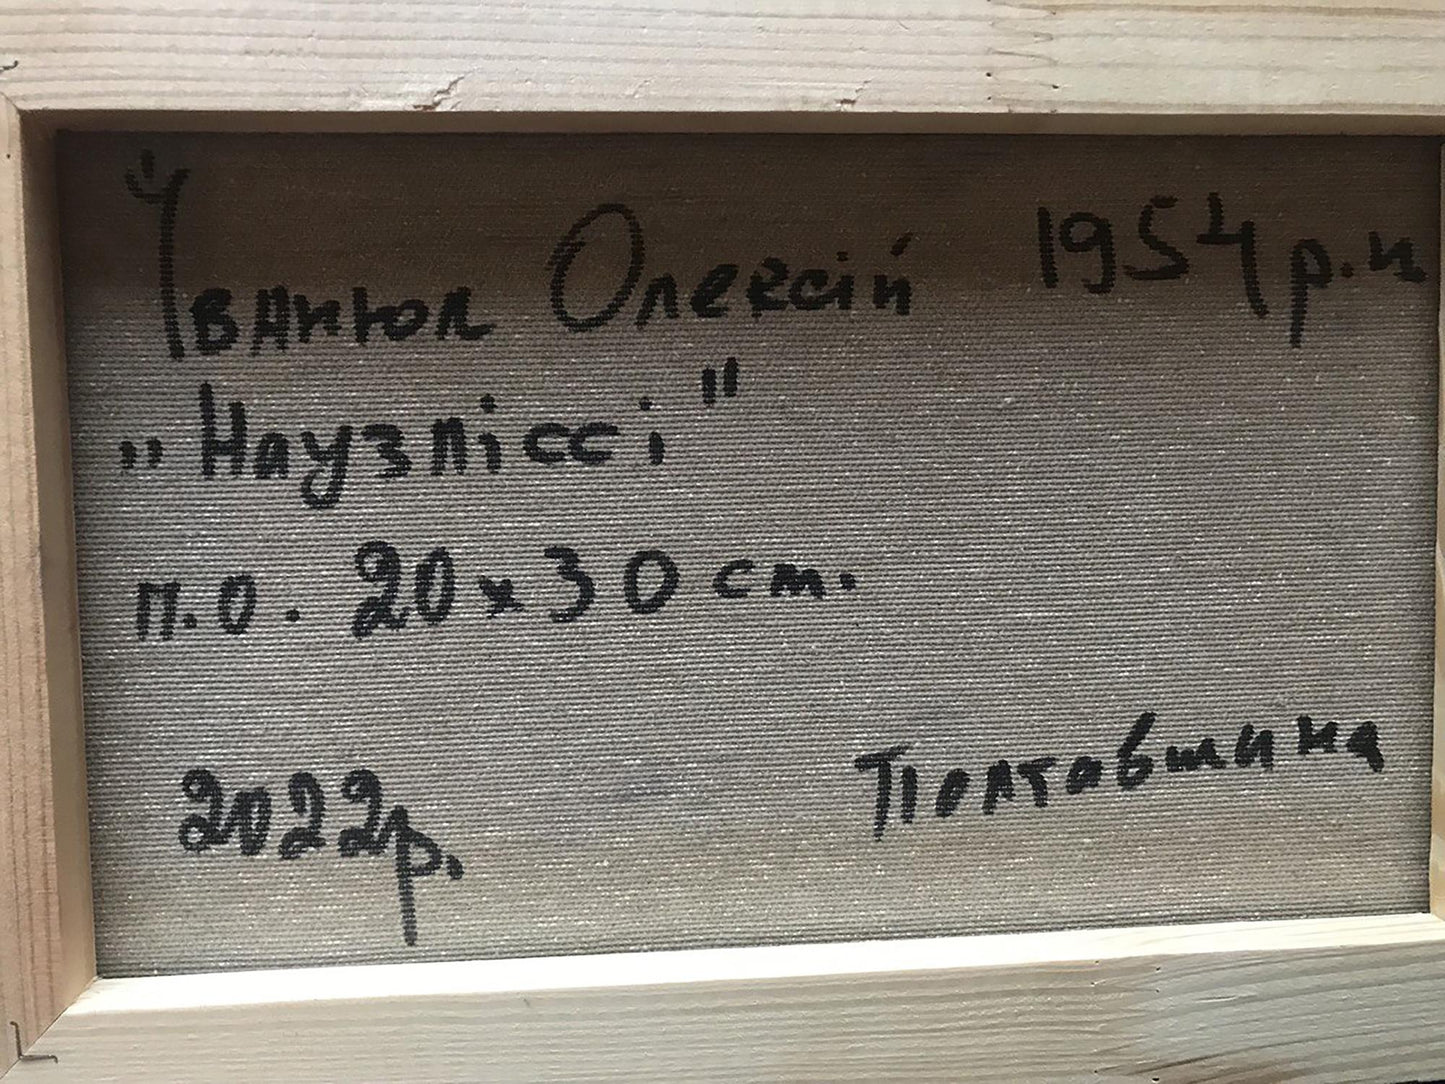 Іванюк Олексій 1954 р.н
„Наузліссі"
п.о. 20х30 см.
2022р.
Полтавшина